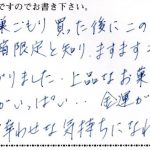 ですのでお書き下さい。
巣ごもり 買った後にこの
箱限定と知り、ますますこ
がりました。上品なお菓
がいっぱい・・金運が
幸わせな気持ちになれ